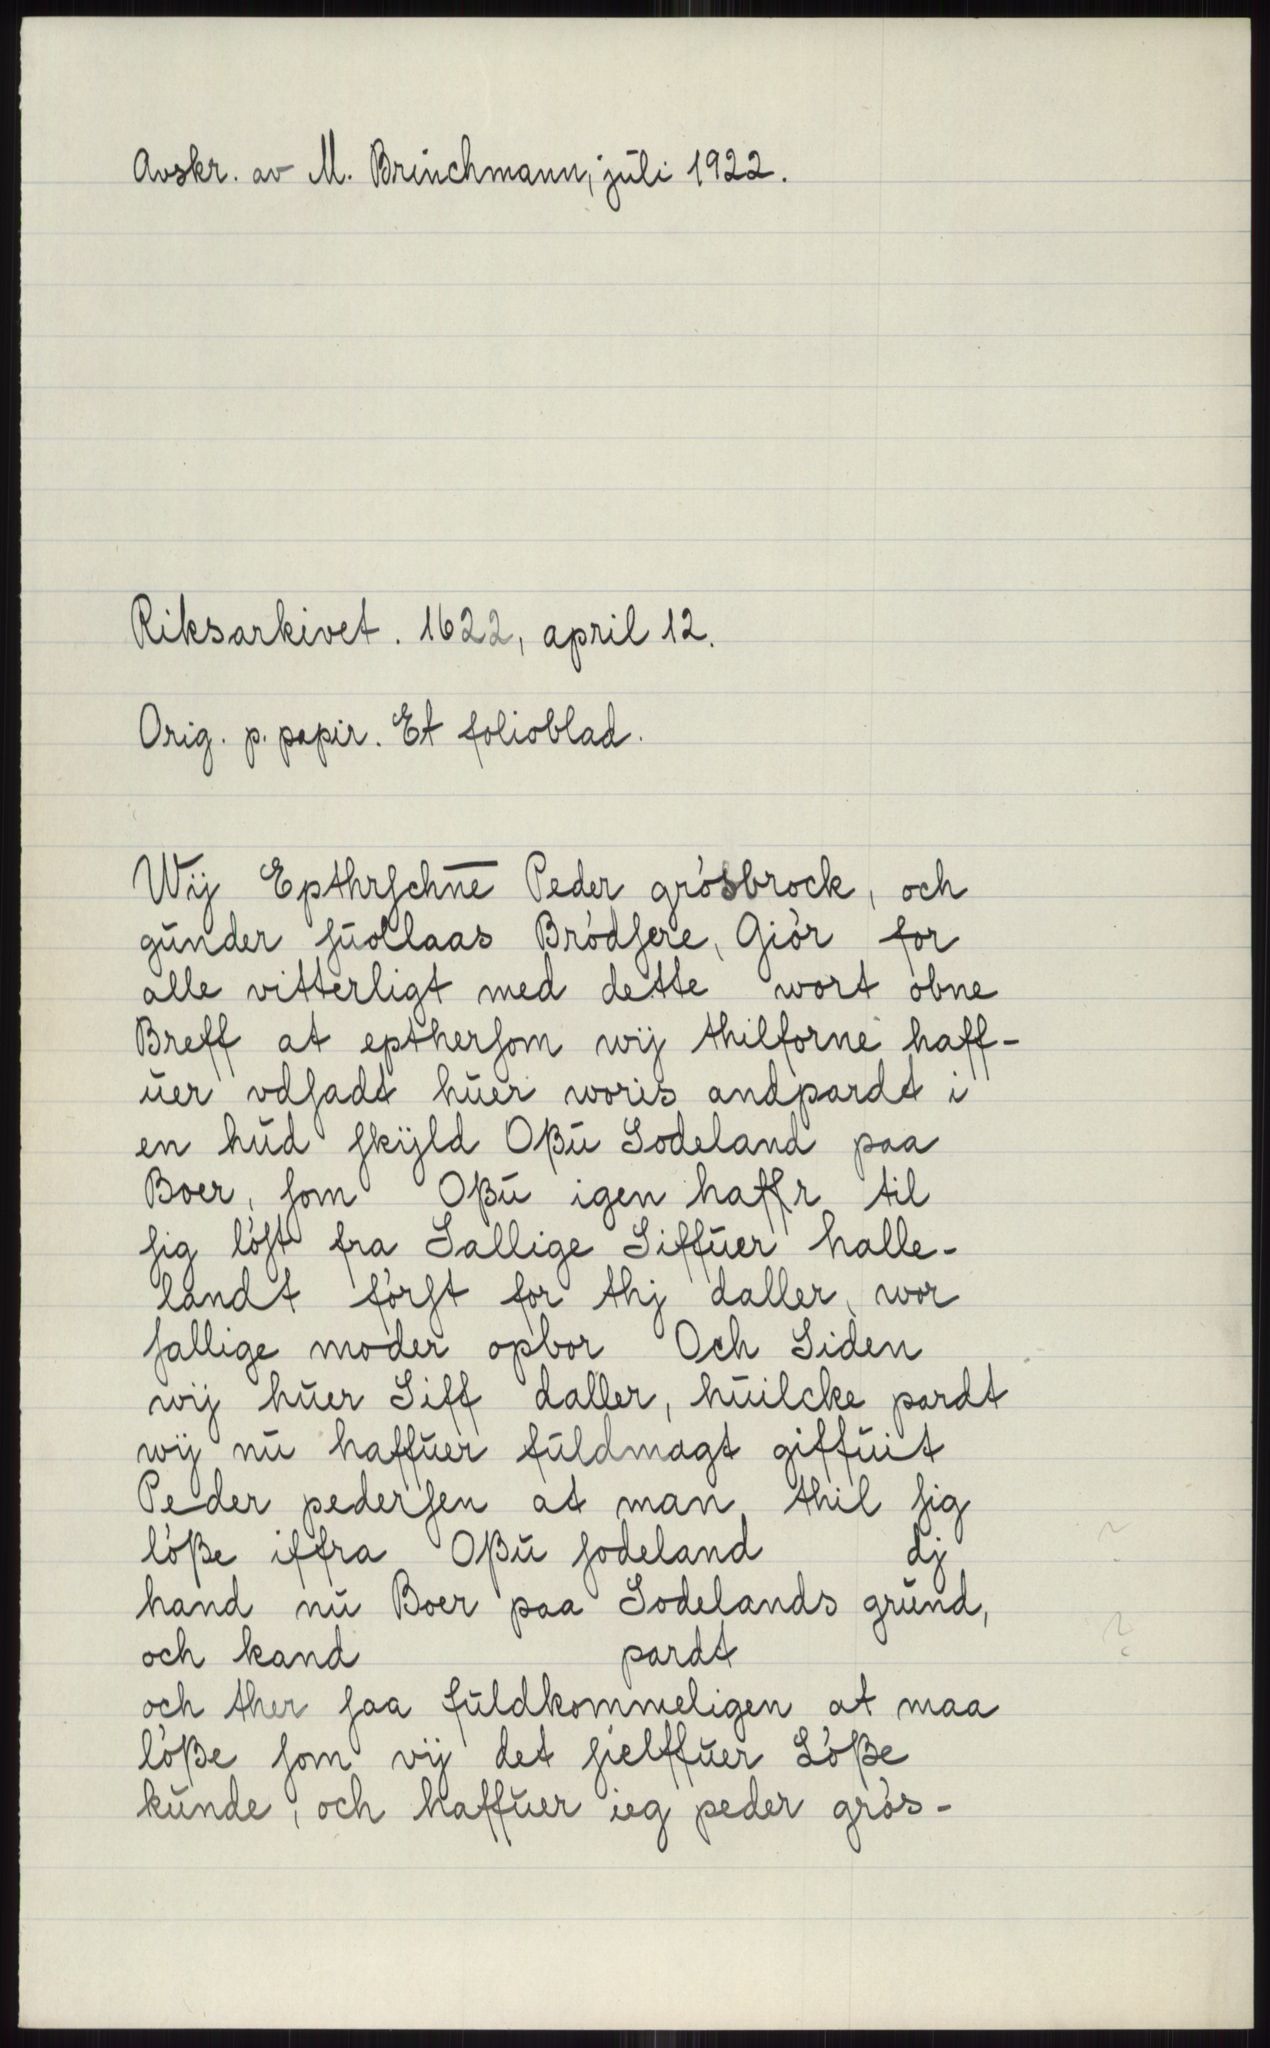 Avskr. av M. Brinchmann, juli 1922.
Riksarkivet. 1622, april 12.
Orig. p. papir. Et folioblad.
Wij Epthrſchnē Peder grósbrock, och
gŭnder ſŭollaas Bródſere, Giór for
alle vitterligt med dette wort obne
Breff at eptherſom wij thilforne haff-
ŭer vdſadt hŭer woris andpardt i
en hŭd ſkÿld Oßŭ Sodeland paa
Boer, ſom Oßŭ igen haffr til
ſig lóſt fra Sallige Siffŭer halle-
landt fórſt for thj daller, wor
ſallige moder opbor Och Siden
wij hŭer Siff daller, hŭilcke pardt
wÿ nŭ haffŭer fŭldmagt giffŭit
Peder pederſen at man thil ſig
lóße iffra Oßŭ ſodeland dj ?
hand nŭ Boer paa Sodelands grŭnd,
och kand pardt ?
och ther ſaa fŭldkommeligen at maa
lóße ſom vij det ſielffŭer Lóße
kŭnde, och haffŭer ieg peder grós-